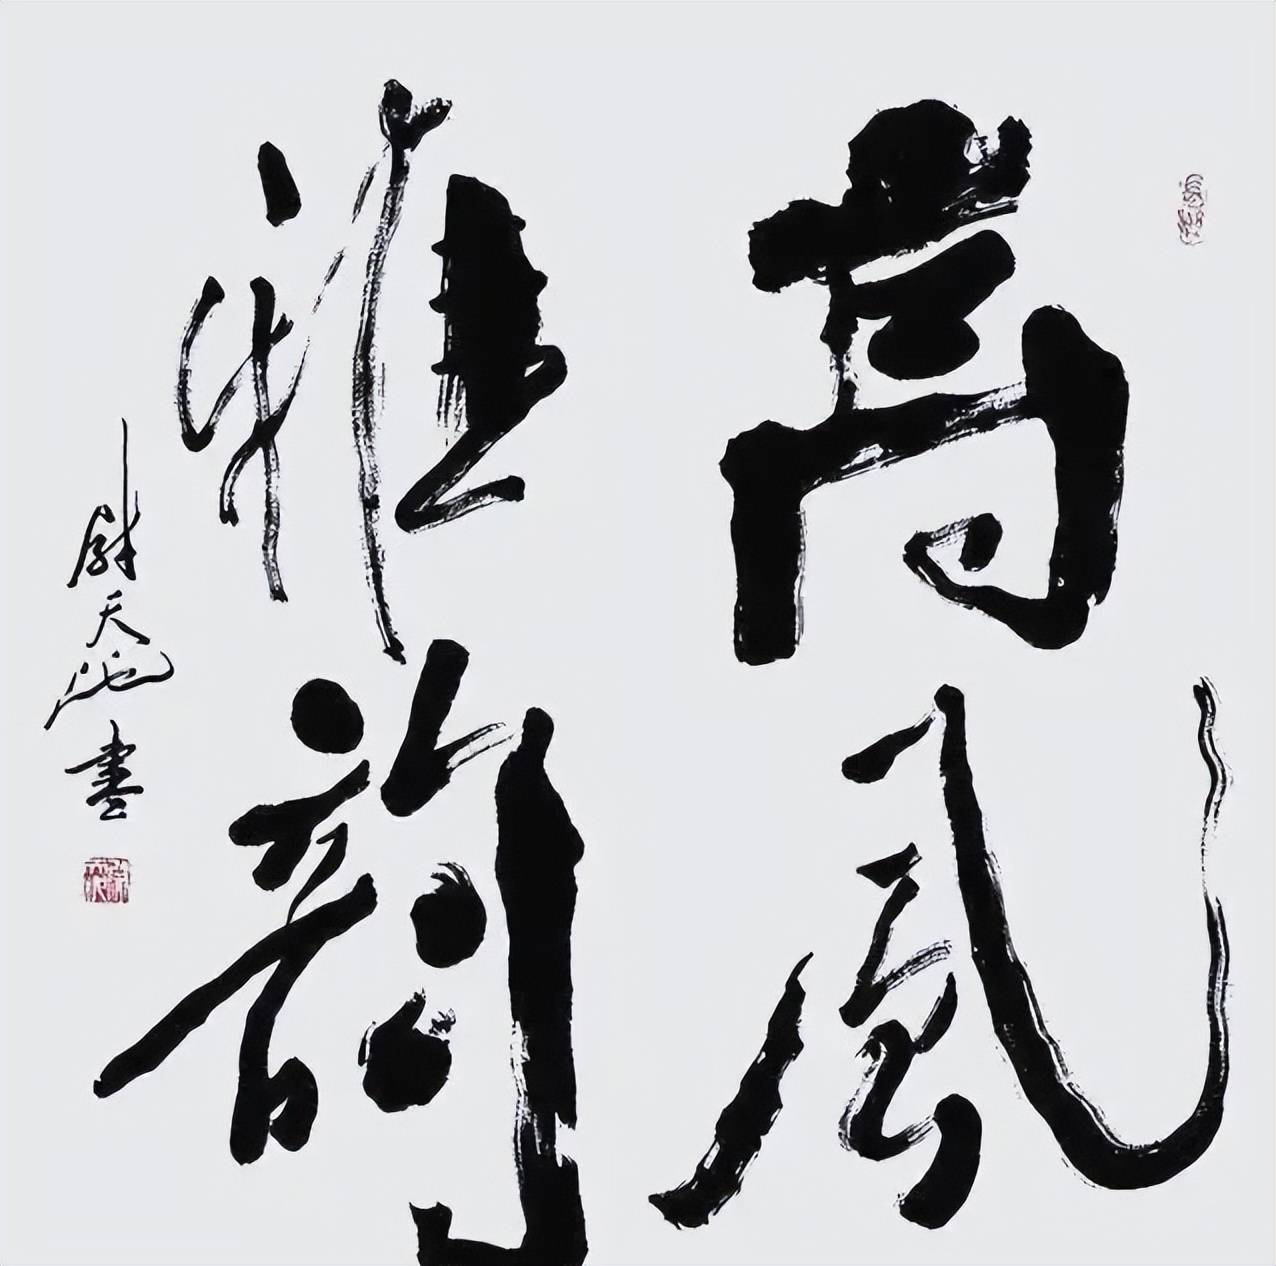 高風
雅韵
尉天池書